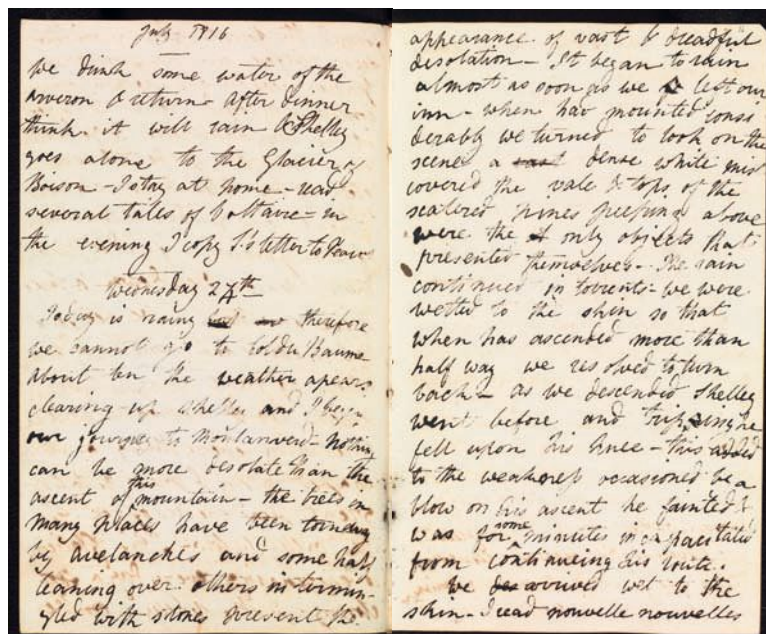 July 1816
we drink some water of the
Arveron & return – After dinner
think it will rain & Shelley
goes alone to the Glacier of
Boison – I stay at home – read
several tales of Voltaire – in
the evening I copy S's letter to Peacock
Wednesday 24th
Today is rainy therefore
we cannot go to Col du Baume
about ten the weather apears
clearing up Shelley and I begin
our journey to Montanverd – Nothing
can be more desolate than the
ascent of this mountain – the trees in
many places have been torn away
by avelanches and some half
leaning over others intermin-
gled with stones present the
appearance of vast & dreadful
desolation – It began to rain
almost as soon as we left our
inn – when had mounted consi
derably we turned to look on the
scene a dense white mist
covered the vale & tops of the
scatered pines peeping above
were the only objects that
presented themselves – The rain
continued in torrents – we were
wetted to the skin so that
when has ascended more than
half way we resolved to turn
back – as we descended Shelley
went before and tripping he
fell upon his knee – this added
to the weakness occasioned be a
blow on his ascent he fainted &
was for some minutes incapacitated
from continueing his route.
We arrived wet to the
skin – I read nouvelle nouvelles